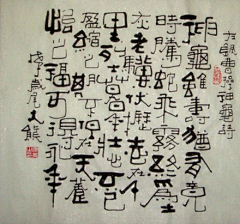 神龜雖壽猶有竟
時騰蛇飛霧終為土
灰老驥伏櫪志在千
里烈士暮年壯心不已
盈縮之期不但在天養
怡之福可得永年